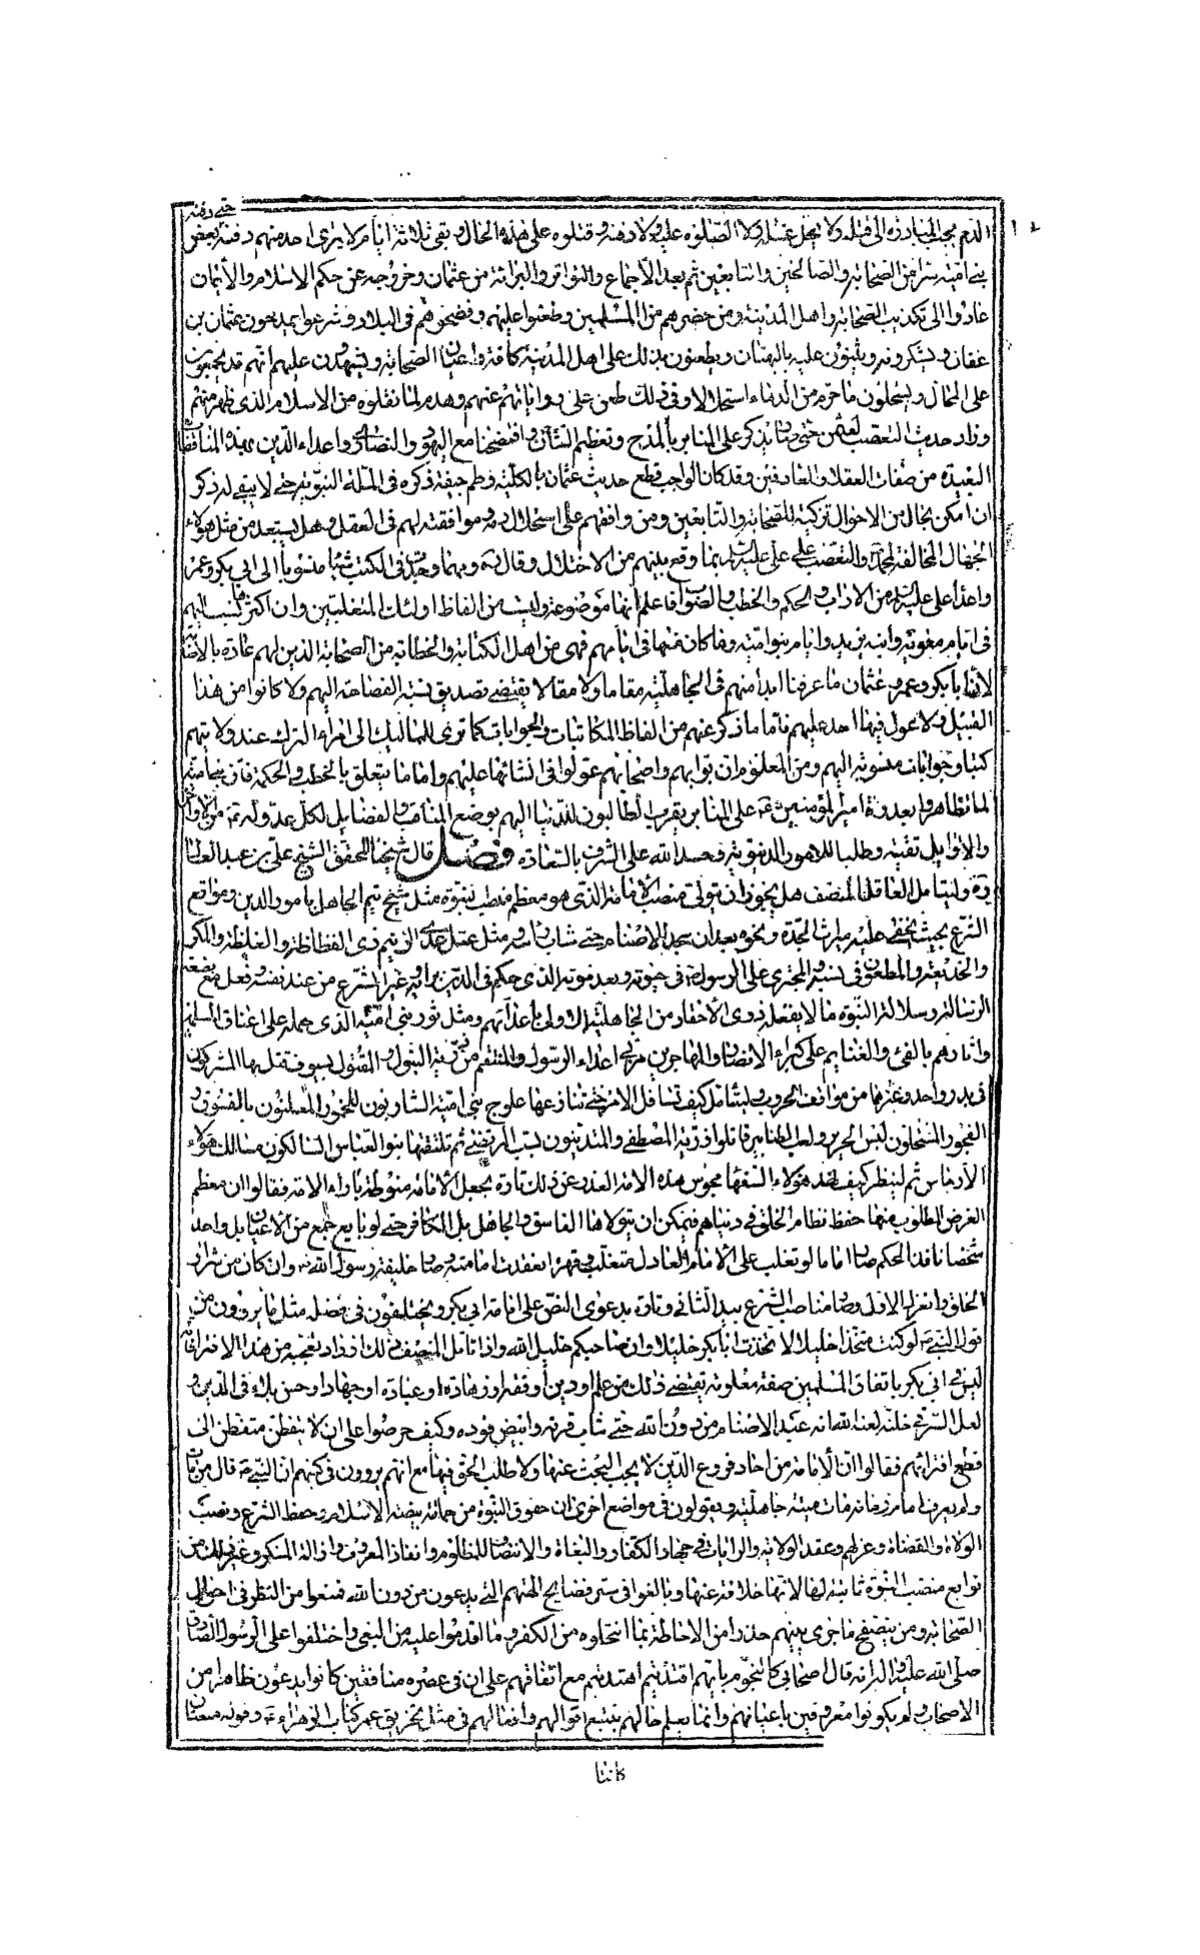 حتى دفنه
الدم يجب المبادرة الى قتله ولا يحل غسله ولا الصلوة عليه ولا دفنه وقتلوه على هذه الحال وبقى ثلاثة ايام لا يرى احد منهم دفنه بعض
بنى امية سرا من الصحابة والصالحين والتابعين ثم بعد الاجماع والتواتر والبرائة من عثمان وخروجه عن حكم الاسلام والأيمان
عادوا الى تكذيب الصحابة واهل المدينة ومن حضرهم من المسلمين وطعنوا عليهم وفضحوهم في البلاد وشرعوا يمدحون عثمان بن
عفان ويشكرونه ويثنون عليه بالبهتان ويطعنون بذلك على اهل المدينة كافة واعيان الصحابة ويشهدون عليهم انهم قد يجتمعون
على المحال ويستحلون ما حرم من الدماء استحلالا وفي ذلك طعن على رواياتهم عنهم وهدم لما نقلوه من الاسلام الذى ظهر منهم
وزاد حديث التعصب لعثمن حتى صار يذكر على المنابر بالمدح وتعظيم الشأن وافتضحنا مع اليهود والنصارى واعداء الدين بهذه المناقضات
البعيدة من صفات العقلاء والعارفين وقد كان الواجب قطع حديث عثمان بالكلية وطم جيفة ذكره في الملة النبوية حتى لا يبقى له ذكر
ان امكن بحال من الاحوال تزكية للصحابة والتابعين ومن وافقهم على استحلال دمه وموافقته لهم في العقل وهل يستبعد من مثل هؤلاء
الجهال المخالفة لمحمد والتعصب على على عليه السلام بما وقع بينهم من الاختلال وقال وجد في الكتب شيئا منسوبا الى ابى بكر وعمر
واعداء على عليه السلام من الاداب والحكم والخطب والصواب فاعلم انها موضوعة وليست من الفاظ اولئك المتغلبين وان اكثرها نسب اليهم
في ايام معوية وابنه يزيد وايام بنى امية وما كان منها في ايامهم فهى من اهل الكتابة والخطابة من الصحابة الذين لهم عادة بالاصابة
لأن ابا بكر وعمر وعثمان ما عرفنا ابدا منهم في الجاهلية مقاما ولا مقالا يقتضى تصديق نسبة الفصاحة اليهم ولا كانوا من هذا
القبيل ولا يعول فيها احد عليهم فاما ما ذكر عنهم من الفاظ المكاتبات والجوابات فكما ترى المماليك الى امراء الترك عند ولايتهم
كتبا وجوابات منسوبة اليهم ومن المعلوم ان نوابهم واصحابهم عولوا في انشائها عليهم واما ما يتعلق بالخطب والحكمة فان بنى امية
لما تظاهروا بعداوة امير المؤمنين ع على المنابر تقرب الطالبون للدنيا اليهم بوضع المناقب والفضايل لكل عدو له ع من الاواخر
والاوايل تقية وطلبا للامور الدنيوية وحسد الله على الشرف بالسعادة فصل قال شيخنا المحقق الشيخ على بن عبد العالى
ره وليتامل العاقل المنصف هل يجوز ان يتولى منصب الأمامة الذى هو معظم منصب النبوة مثل شيخ تيم الجاهل بامور الدين ومواقع
الشرع بحيث يخفى عليه ميراث الجدة ونحوه بعد ان سجد للاصنام حتى شاب راسه ومثل عتل عدى الزنيم ذى الفظاظة والغلظة والمكر
والخديعة والمطعون في نسبه والمجترى على الرسول ص في حيوته وبعد موته الذى حكم في الدين برايه وغير الشرع من عند نفسه وفعل مع بضعة
الرسالة وسلالة النبوة ما لا يفعله ذوى الأحقاد من الجاهلية الأولى بأعدائهم ومثل ثور بنى امية الذى حمله على اعناق المسلمين
واثارهم بالفئ والغنايم على كبراء الانصار والمهاجرين مقرب اعداء الرسول والمنتقم من ذرية البتول والمقتول بسيوف قتل بها المشركون
في بدر واحد وغيرها من مواقف الحروب وليتامل كيف تسافل الامر حتى تنازعها علوج بنى امية الشاربون للخمور المعلنون بالفسوق و
الفجور المستحلون لبس الحرير ولعب الطنابير قاتلوا ذرية المصطفى والمتدينون بسب المرتضى ثم تلقفها بنو العباس السالكون مسالك هؤلاء
الأرجاس ثم لينظر كيف اتخذ هؤلاء السفهاء مجوس هذه الامة العذر عن ذلك تارة بجعل الأمامة منوطة باراء الامة فقالوا ان معظم
الغرض المطلوب منها حفظ نظام الخلق في دنياهم فيمكن ان يتولاها الفاسق والجاهل بل الكافر حتى لو بايع جمع من الأعيان بل واحد
شخصا نافذ الحكم صار اماما لو تغلب على الأمام العادل متغلب وقهره انعقدت امامته وصار خليفة رسول الله ص وان كان من شرار
الخلق وانعزل الاول وصار مناصب الشرع بيد الثانى وتارة بدعوى النص على امامة ابى بكر ويختلقون في فضله مثل ما يروون من
قول النبى ص لو كنت متخذا خليلا لاتخذت ابا بكر خليلا وان صاحبكم خليل الله واذا تامل المنصف ذلك ازداد تعجبه من هذا الافتراء اذ
ليس في ابى بكر باتفاق المسلمين صفة معلومة يقتضى ذلك من علم او دين أو فقه او زهادة او عبادة او جهاد او حسن بلاء في الدين و
لعل السر في خلته لعنه الله انه عبد الاصنام من دون الله حتى شاب قرنه وابيض فوده وكيف حرصوا على ان لا يتفطن متفطن الى
قطع افترائهم فقالوا ان الأمامة من احاد فروع الدين لا يجب البحث عنها ولا طلب الحق فيها مع انهم يروون في كتبهم ان النبى ص قال من مات
ولم يعرف امام زمانه مات ميتة جاهلية ويقولون في مواضع اخرى ان حقوق النبوة من حماية بيضة الاسلام وحفظ الشرع ونصب
الولاة والقضاة وعزلهم وعقد الولاية والرايات في جهاد الكفار والبغاة والانتصار للمظلوم وانفاذ المعروف وازالة المنكر وغير ذلك من
توابع منصب النبوة ثابتة لها لانها خلافة عنها وبالغوا في ستر فضايح الهتهم التى يدعون من دون الله فمنعوا من النظر في احوال
الصحابة ومن يتصفح ما جرى بينهم حذرا من الاحاطة بما انتحلوه من الكفر وما اقدموا عليه من البغى واختلفوا على الرسول الصادق
صلى الله عليه واله انه قال اصحابى كالنجوم بايهم اقتديتم اهتديتم مع اتفاقهم على ان في عصره منافقين كانوا يدعون ظاهرا من
الاصحاب ولم يكونوا معروفين باعيانهم وانما يعلم حالهم بتتبع اقوالهم وافعالهم في مثل تخريق عمر كتاب الزهراء ع وقوله متعتان
كانتا